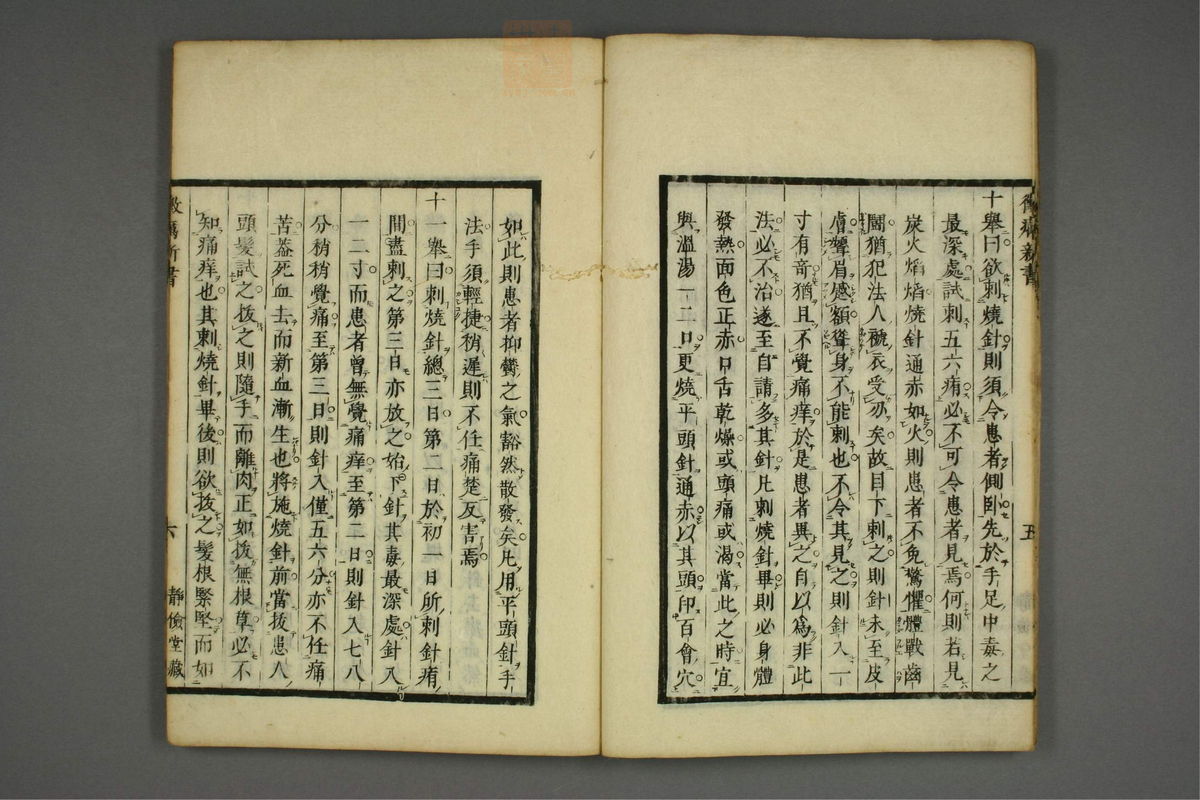 黴癘新書
十舉曰欲刺燒針則須令患者側臥先於手足中毒之
最深處試刺五六痏必不可令患者見焉何則若見
炭火熖熖燒針通赤如火則患者不免驚懼體戰齒
鬭猶犯法人褫衣受刃矣故目下刺之則針未至皮
膚顰眉蹙額聳身不能刺也不令其見之則針入一
寸有奇猶且不覺痛痒於是患者異之自以爲非此
法必不治遂至自請多其針凡刺燒針畢則必身體
發熱面色正赤口舌乾燥或頭痛或渴當此之時宜
與溫湯一二口更燒平頭針通赤以其頭印百會穴
五
如此則患者抑鬱之氣豁然散發矣凡用平頭針手
法手須輕捷稍遲則不任痛楚反害焉
十一舉曰刺燒針總三日第二日於初一日所刺針痏
間盡刺之第三日亦放之始下針其毒最深處針入
一二寸而患者曾無覺痛痒至第二日則針入七八
分稍稍覺痛至第三日則針入僅五六分亦不任痛
苦蓋死血去而新血漸生也將施燒針前當拔患人
頭髮試之拔之則隨手而離肉正如拔無根草必不
知痛痒也其刺燒針畢後則欲拔之髮根緊堅而如
黴癘新書
六
靜儉堂藏